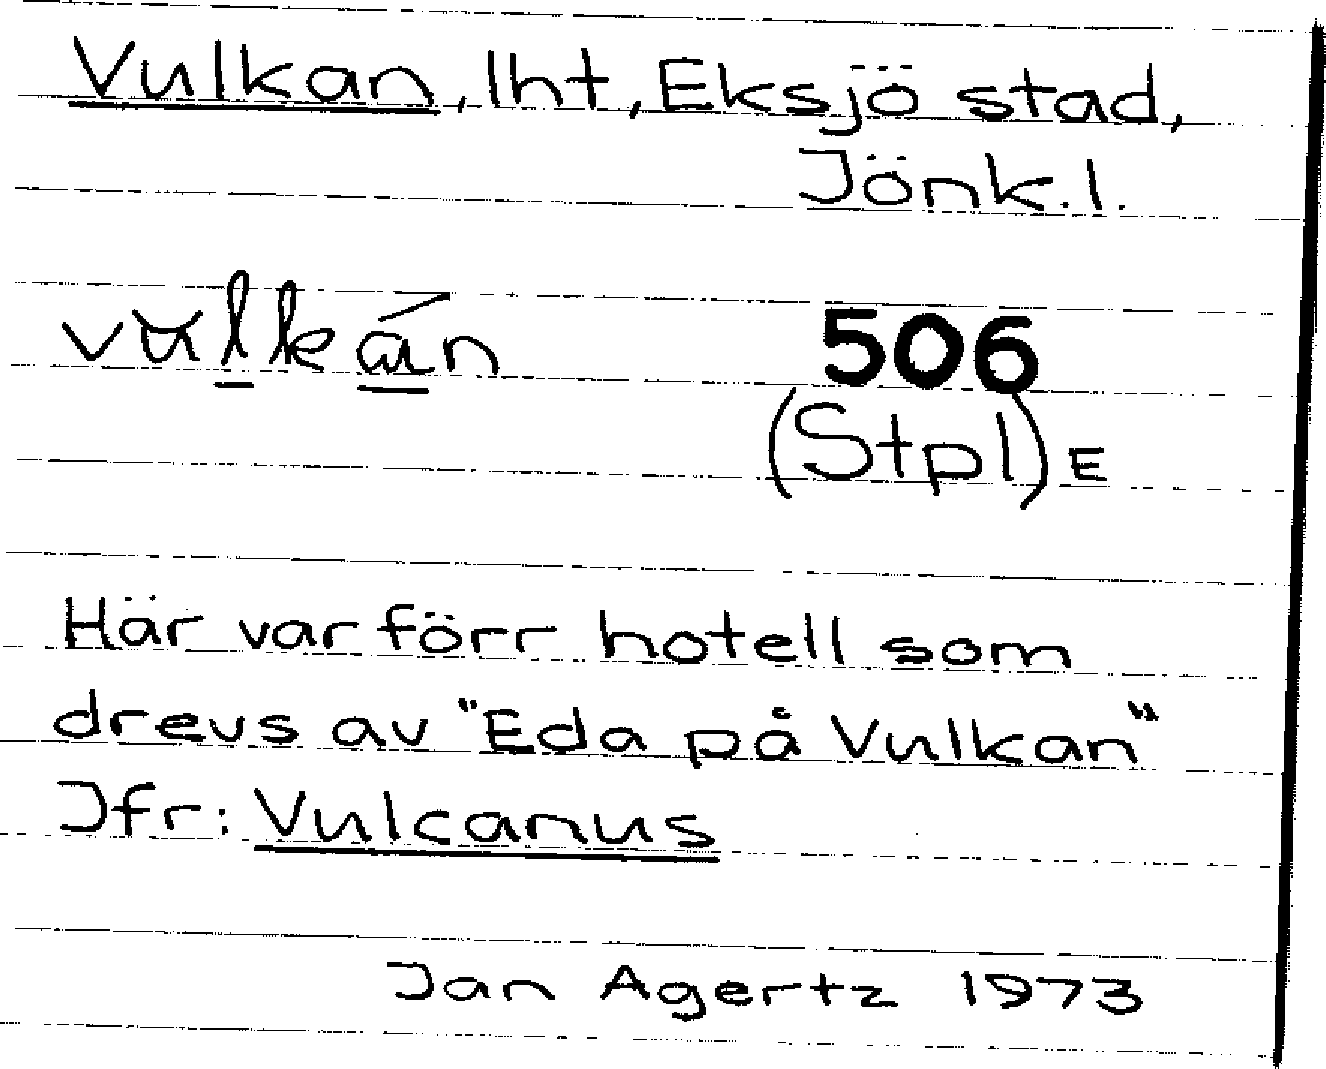 Vulkan, lht, Eksjö stad,
Jönk.l.
vŭlkán 506
(Stpl) E
Här var förr hotell som
drevs av "Eda på Vulkan"
Jfr: Vulcanus
Jan Agertz 1973